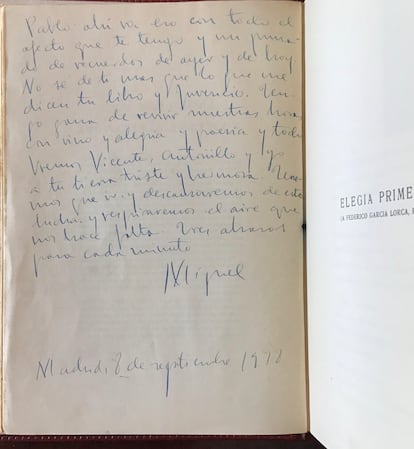 Pablo: ahí va eso con todo el
afecto que te tengo y un puña-
do de recuerdos de ayer y de hoy.
No sé de ti mas que lo que me
dicen tu libro y Juvencio. Ten-
go gana de revivir nuestras horas
con vino y alegría y poesía y todo.
Iremos Vicente, Antoñillo y yo
a tu tierra triste y hermosa.
mos que ir y descansaremos de esta
lucha y respiraremos el aire que
nos hace falta. Tres abrazos
para cada minuto
Miguel
Madrid, 8 de septiembre 1938
ELEGIA PRIME
(A FEDERICO GARCIA LORCA,